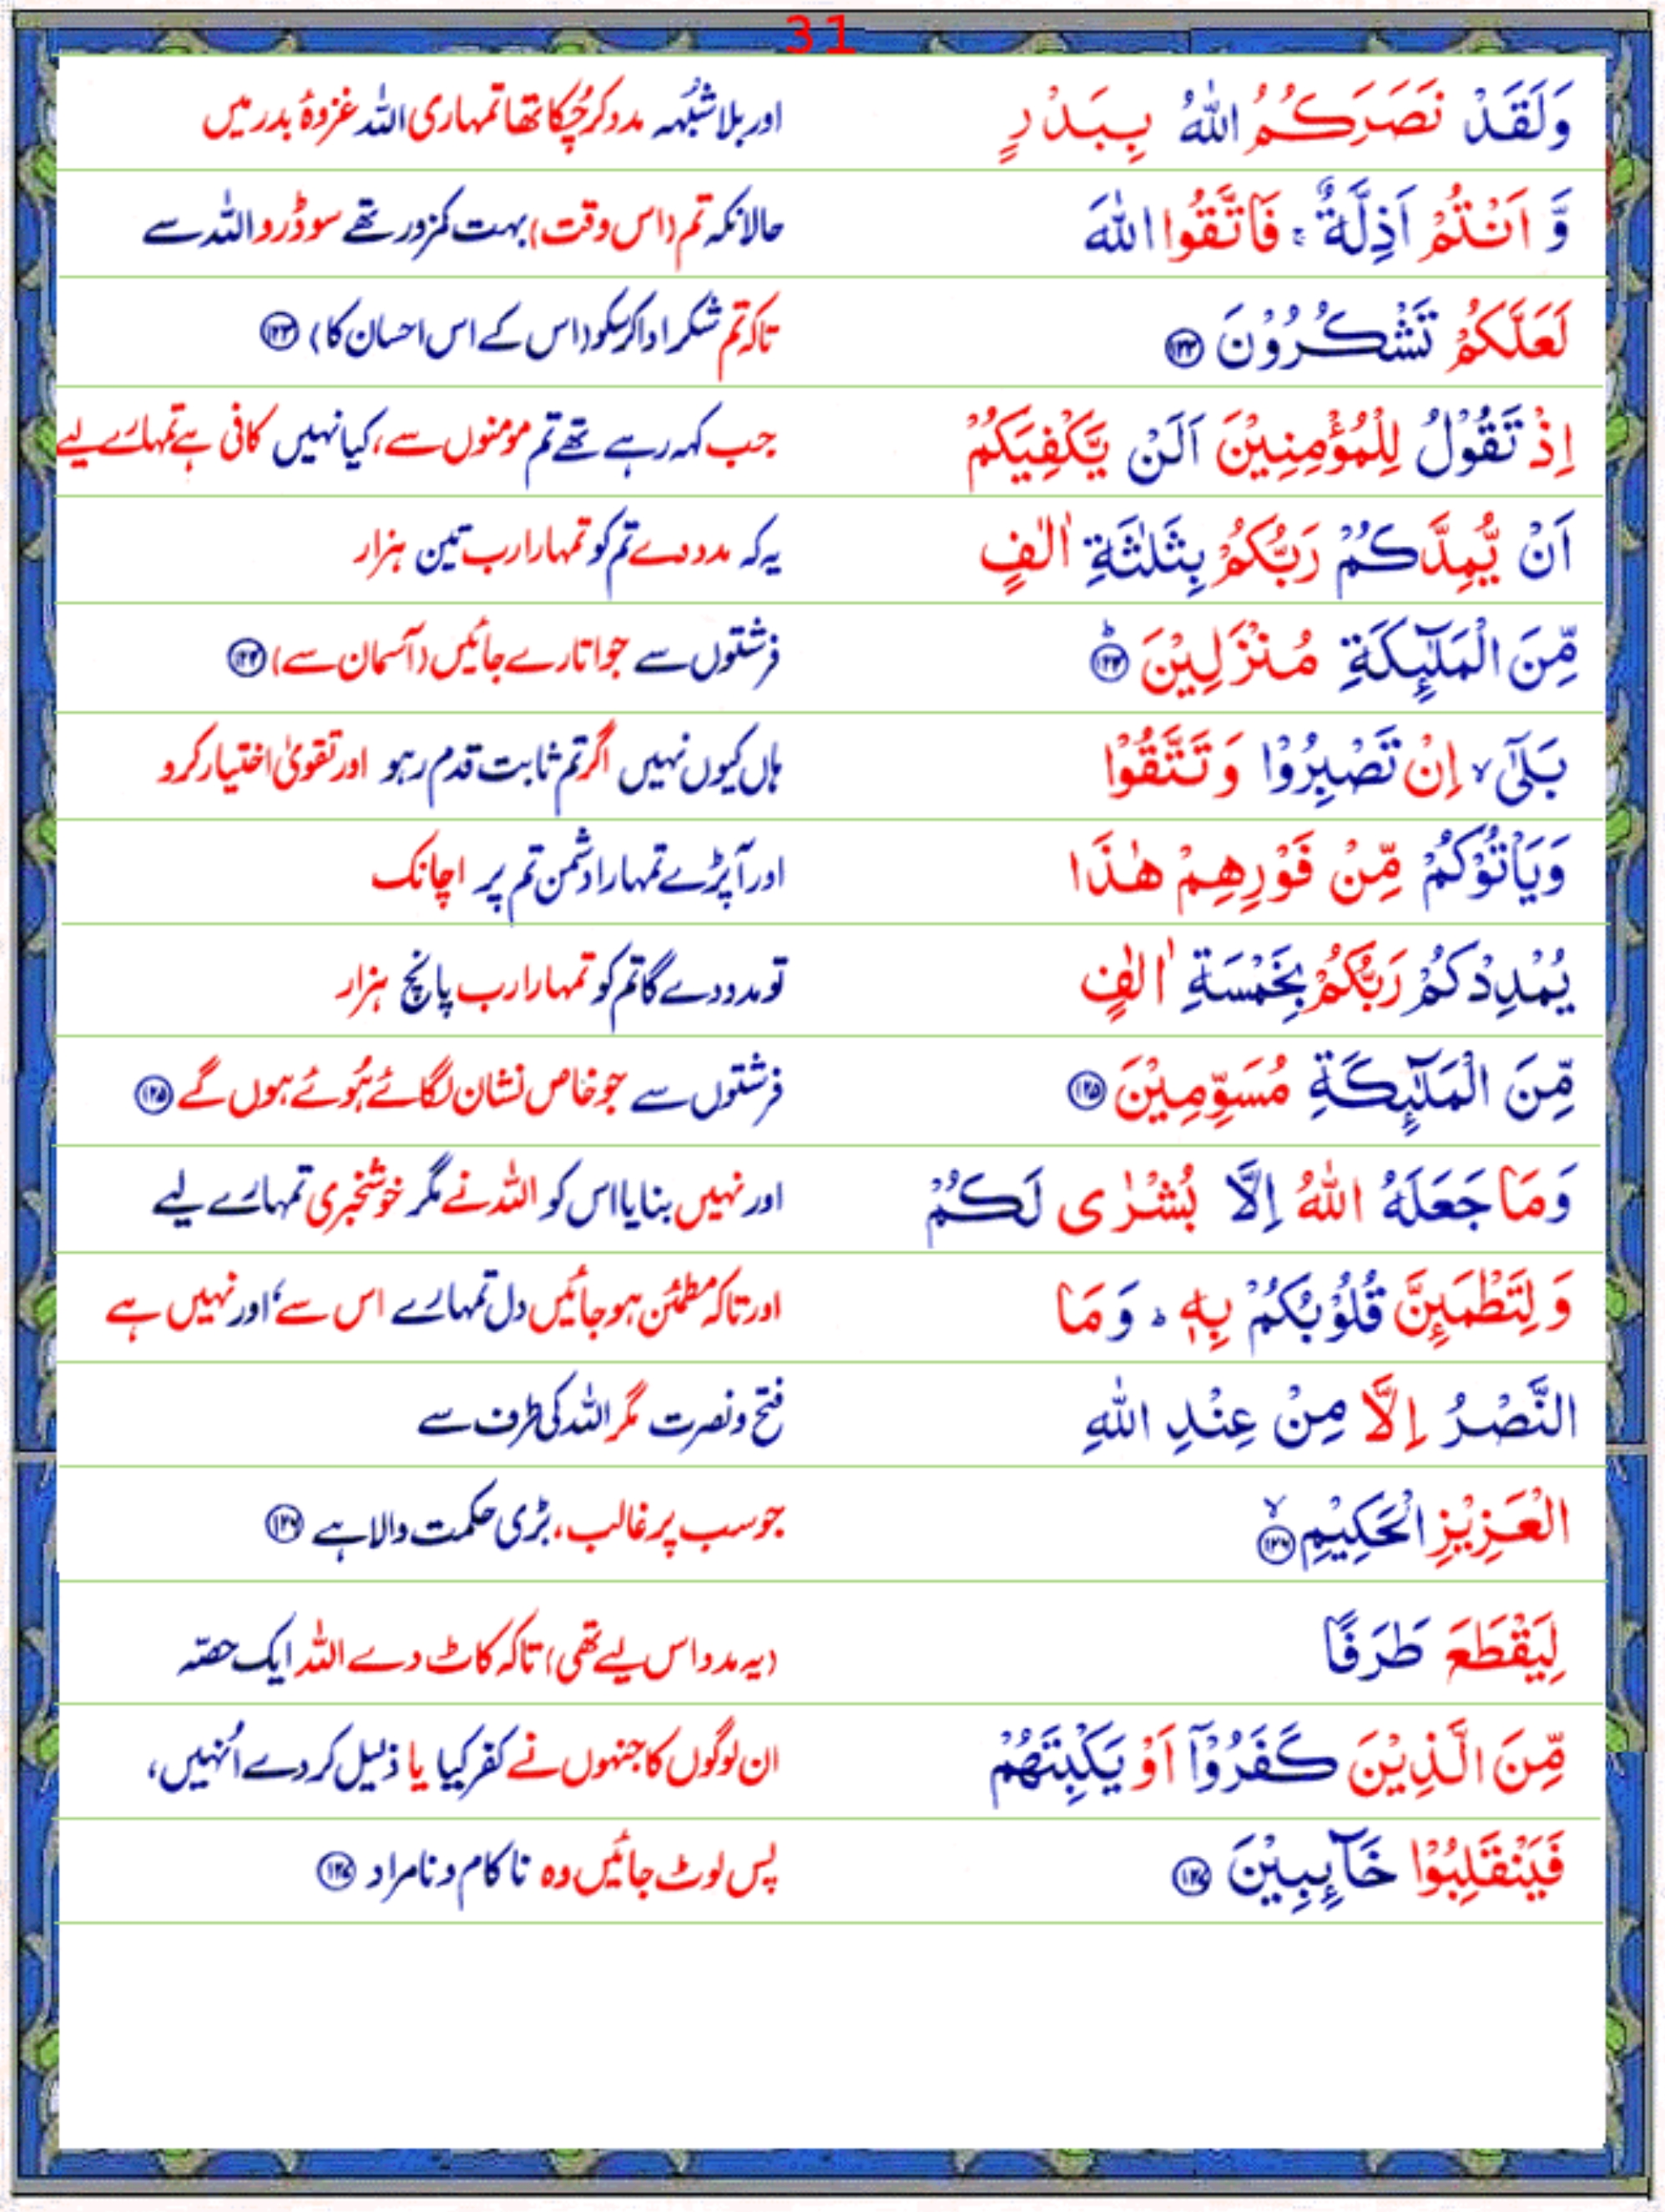 31
وَلَقَدْ نَصَرَكُمُ اللّٰهُ بِبَدْرٍ اور بلاشبُہہ مدد کر چُکا تھا تمہاری اللّٰہ غزوۂ بدر میں
وَّ اَنْتُمْ اَذِلَّةٌ ۚ فَاتَّقُوا اللّٰهَ حالانکہ تم (اس وقت) بہت کمزور تھے سو ڈرو اللّٰہ سے
لَعَلَّكُمْ تَشْكُرُوْنَ ﴿۱۲۳﴾ تاکہ تم شکر ادا کرسکو (اس کے اس احسان کا) ﴿۱۲۳﴾
اِذْ تَقُوْلُ لِلْمُؤْمِنِيْنَ اَلَنْ يَّكْفِيَكُمْ جب کہہ رہے تھے تم مومنوں سے، کیا نہیں کافی ہے تمہارے لیے
اَنْ يُّمِدَّكُمْ رَبُّكُمْ بِثَلٰثَةِ اٰلٰفٍ یہ کہ مدد دے تم کو تمہارا رب تین ہزار
مِّنَ الْمَلٰٓئِكَةِ مُنْزَلِيْنَ ﴿۱۲۴﴾ؕ فرشتوں سے جو اتارے جائیں (آسمان سے) ﴿۱۲۴﴾
بَلٰٓى ۙ اِنْ تَصْبِرُوْا وَتَتَّقُوْا ہاں کیوں نہیں اگر تم ثابت قدم رہو اور تقویٰ اختیار کرو
وَيَاْتُوْكُمْ مِّنْ فَوْرِهِمْ هٰذَا اور آپڑے تمہارا دشمن تم پر اچانک
يُمْدِدْكُمْ رَبُّكُمْ بِخَمْسَةِ اٰلٰفٍ تو مدد دے گا تم کو تمہارا رب پانچ ہزار
مِّنَ الْمَلٰٓئِكَةِ مُسَوِّمِيْنَ ﴿۱۲۵﴾ فرشتوں سے جو خاص نشان لگائے ہُوئے ہوں گے ﴿۱۲۵﴾
وَمَا جَعَلَهُ اللّٰهُ اِلَّا بُشْرٰى لَكُمْ اور نہیں بنایا اس کو اللّٰہ نے مگر خوشخبری تمہارے لیے
وَلِتَطْمَئِنَّ قُلُوْبُكُمْ بِهٖ ؕ وَمَا اور تاکہ مطمئن ہوجائیں دل تمہارے اس سے، اور نہیں ہے
النَّصْرُ اِلَّا مِنْ عِنْدِ اللّٰهِ فتح و نصرت مگر اللّٰہ کی طرف سے
الْعَزِيْزِ الْحَكِيْمِ ﴿۱۲۶﴾ۙ جو سب پر غالب، بڑی حکمت والا ہے ﴿۱۲۶﴾
لِيَقْطَعَ طَرَفًا (یہ مدد اس لیے تھی) تاکہ کاٹ دے اللّٰہ ایک حصّہ
مِّنَ الَّذِيْنَ كَفَرُوْٓا اَوْ يَكْبِتَهُمْ ان لوگوں کا جنہوں نے کفر کیا یا ذلیل کردے اُنہیں،
فَيَنْقَلِبُوْا خَآئِبِيْنَ ﴿۱۲۷﴾ پس لوٹ جائیں وہ ناکام و نامراد ﴿۱۲۷﴾